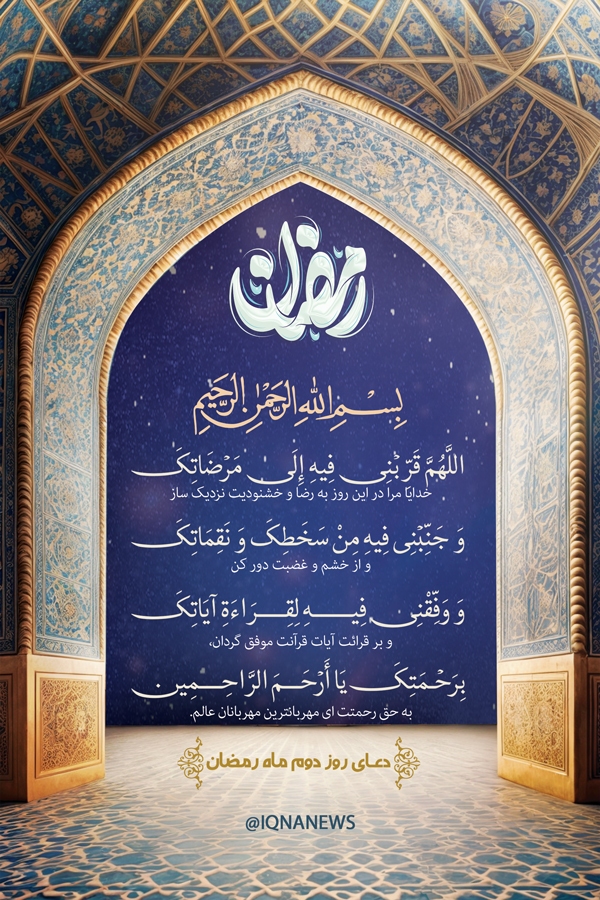 رمضان
بِسْمِ اللهِ الرَّحْمٰنِ الرَّحِيمِ
اللَّهُمَّ قَرِّبْنِی فِيهِ إِلَی مَرْضَاتِکَ
خدایا مرا در این روز به رضا و خشنودیت نزدیک ساز
وَ جَنِّبْنِی فِيهِ مِنْ سَخَطِکَ وَ نَقِمَاتِکَ
و از خشم و غضبت دور کن
وَ وَفِّقْنِی فِیهِ لِقِرَاءَةِ آيَاتِکَ
و بر قرائت آیات قرآنت موفق گردان،
بِرَحْمَتِکَ يَا أَرْحَمَ الرَّاحِمِين
به حق رحمتت ای مهربانترین مهربانان عالم.
دعای روز دوم ماه رمضان
@IQNANEWS